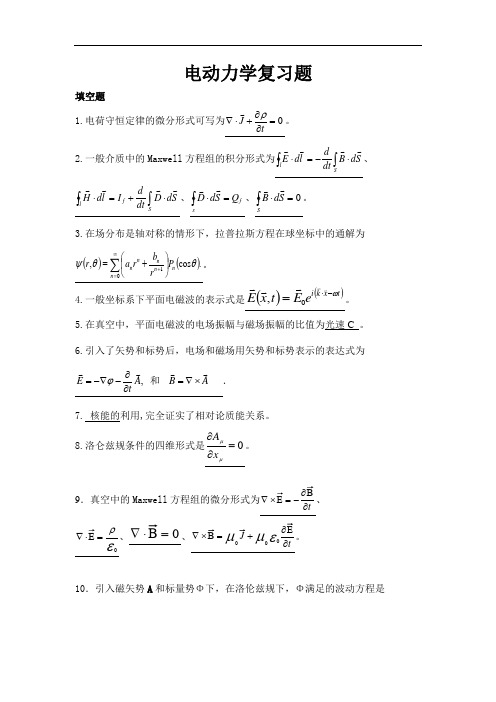 电动力学复习题
填空题
1.电荷守恒定律的微分形式可写为 ∇·J⃗ + ∂ρ/∂t = 0 。
2.一般介质中的 Maxwell 方程组的积分形式为 ∮_l E⃗·dl⃗ = −d/dt ∫_S B⃗·dS⃗ 、
∮_l H⃗·dl⃗ = I_f + d/dt ∫_S D⃗·dS⃗ 、∮_s D⃗·dS⃗ = Q_f 、∮_S B⃗·dS⃗ = 0 。
3.在场分布是轴对称的情形下，拉普拉斯方程在球坐标中的通解为
ψ(r,θ) = ∑_{n=0}^{∞} (a_n r^n + b_n/r^{n+1}) P_n(cosθ). 。
4.一般坐标系下平面电磁波的表示式是 E⃗(x⃗,t) = E⃗₀e^{i(k⃗·x⃗−ωt)} 。
5.在真空中，平面电磁波的电场振幅与磁场振幅的比值为光速 C 。
6.引入了矢势和标势后，电场和磁场用矢势和标势表示的表达式为
E⃗ = −∇φ − ∂/∂t A⃗, 和 B⃗ = ∇×A⃗ .
7. 核能的利用,完全证实了相对论质能关系。
8.洛仑兹规条件的四维形式是 ∂A_μ/∂x_μ = 0 。
9．真空中的 Maxwell 方程组的微分形式为 ∇×E⃗ = −∂B⃗/∂t 、
∇·E⃗ = ρ/ε₀ 、∇·B⃗ = 0 、∇×B⃗ = μ₀J⃗ + μ₀ε₀ ∂E⃗/∂t 。
10．引入磁矢势 A 和标量势Φ下，在洛伦兹规下，Φ满足的波动方程是